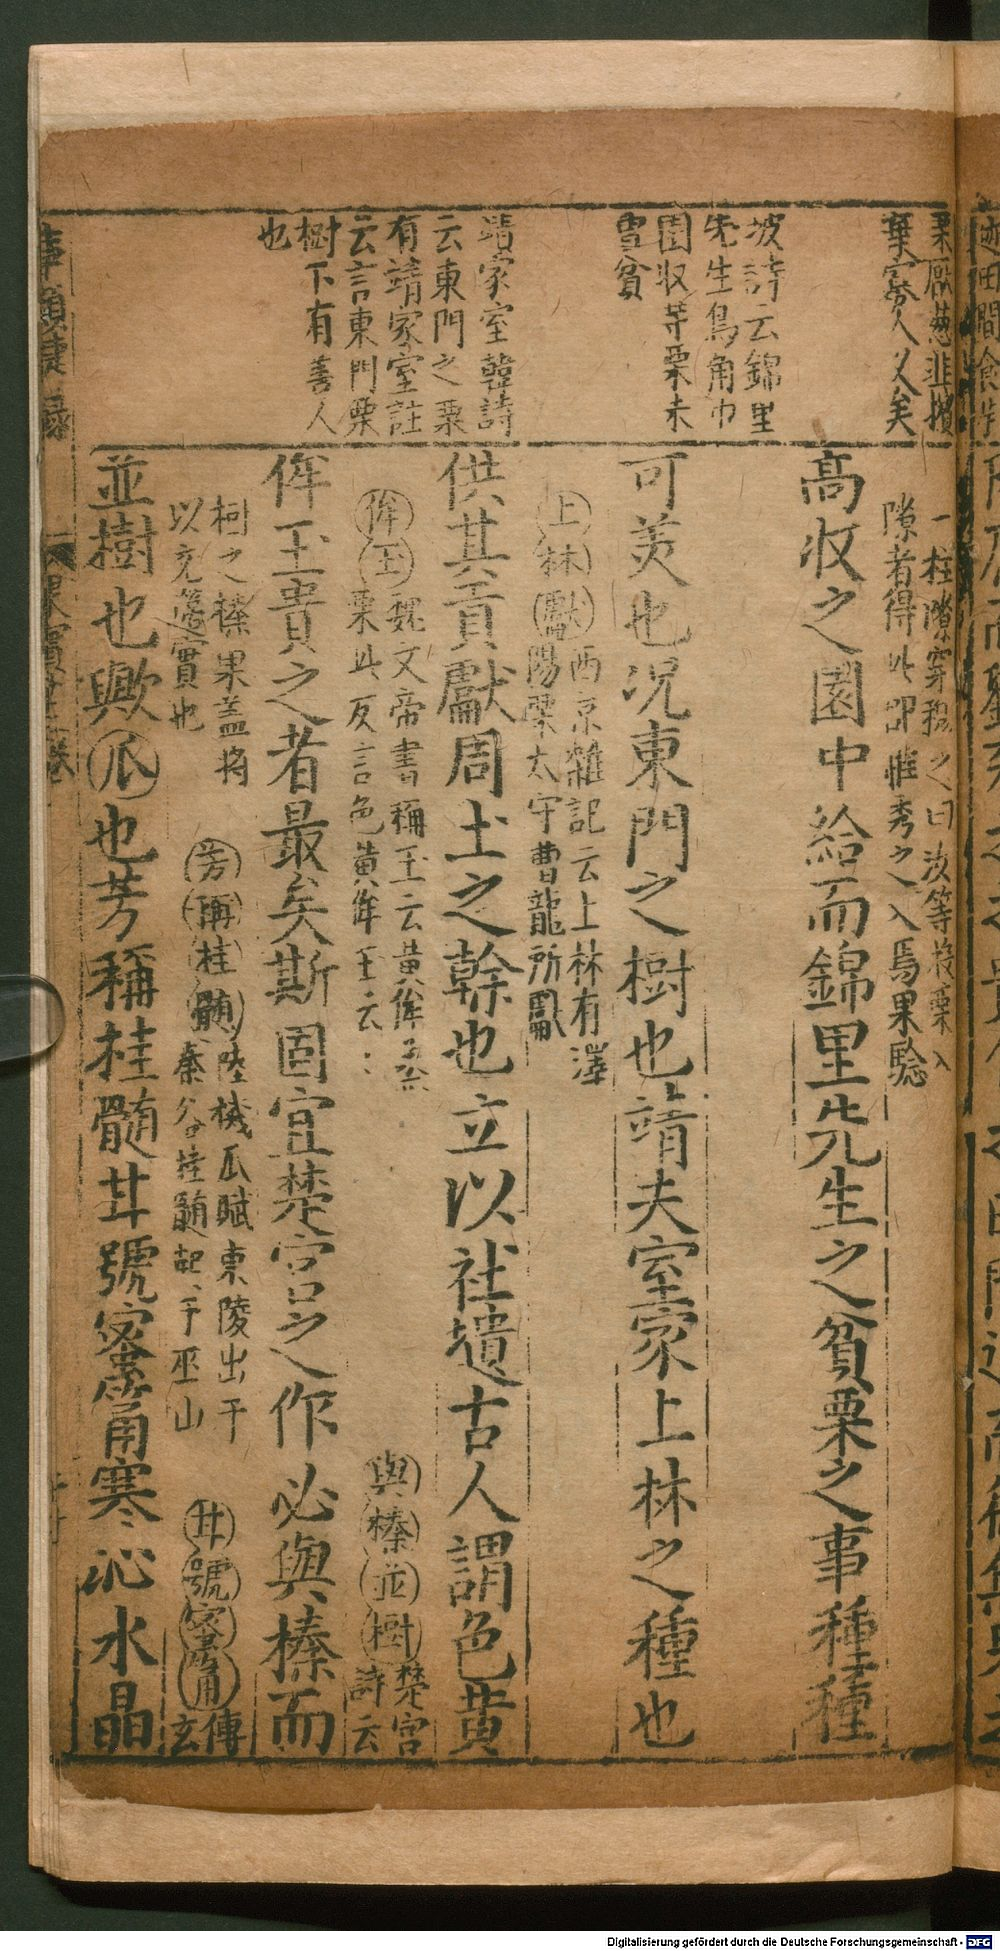 棄寡人久矣
坡詩云錦里
先生烏角巾
園收芋栗未
曾貧
靖家室韓詩
云東門之栗
有靖家室註
云言東門栗
樹下有善人
也
一柱隙穿穏之曰汝等投栗入
隙者得此卽惟秀之入焉果驗
高收之園中給而錦里先生之貧栗之事種種
可美也況東門之樹也靖夫室家上林之種也
上林獻西京雜記云上林有嶧
陽栗太守曹龍所獻
供其貢獻周土之榦也立以社遺古人謂色黄
侔玉魏文帝書稱玉云黄侔蒸
栗此反言色黄侔玉云
與榛並樹楚宮
詩云
侔玉貴之者最矣斯固宜楚宮之作必與榛而
栩之榛果盖將
以充籩實也
芳稱桂髄陸機瓜賦東陵出于
秦谷桂髄起于巫山
甘號密筩傳
玄
並樹也歟瓜也芳稱桂髄甘號密筩寒沁水晶
Digitalisierung gefördert durch die Deutsche Forschungsgemeinschaft - DFG